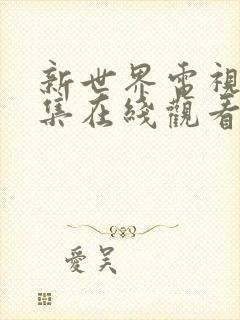 新世界電視
集在綫觀看
愛吴